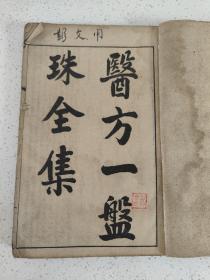 彭文用
醫方一盤
珠全集